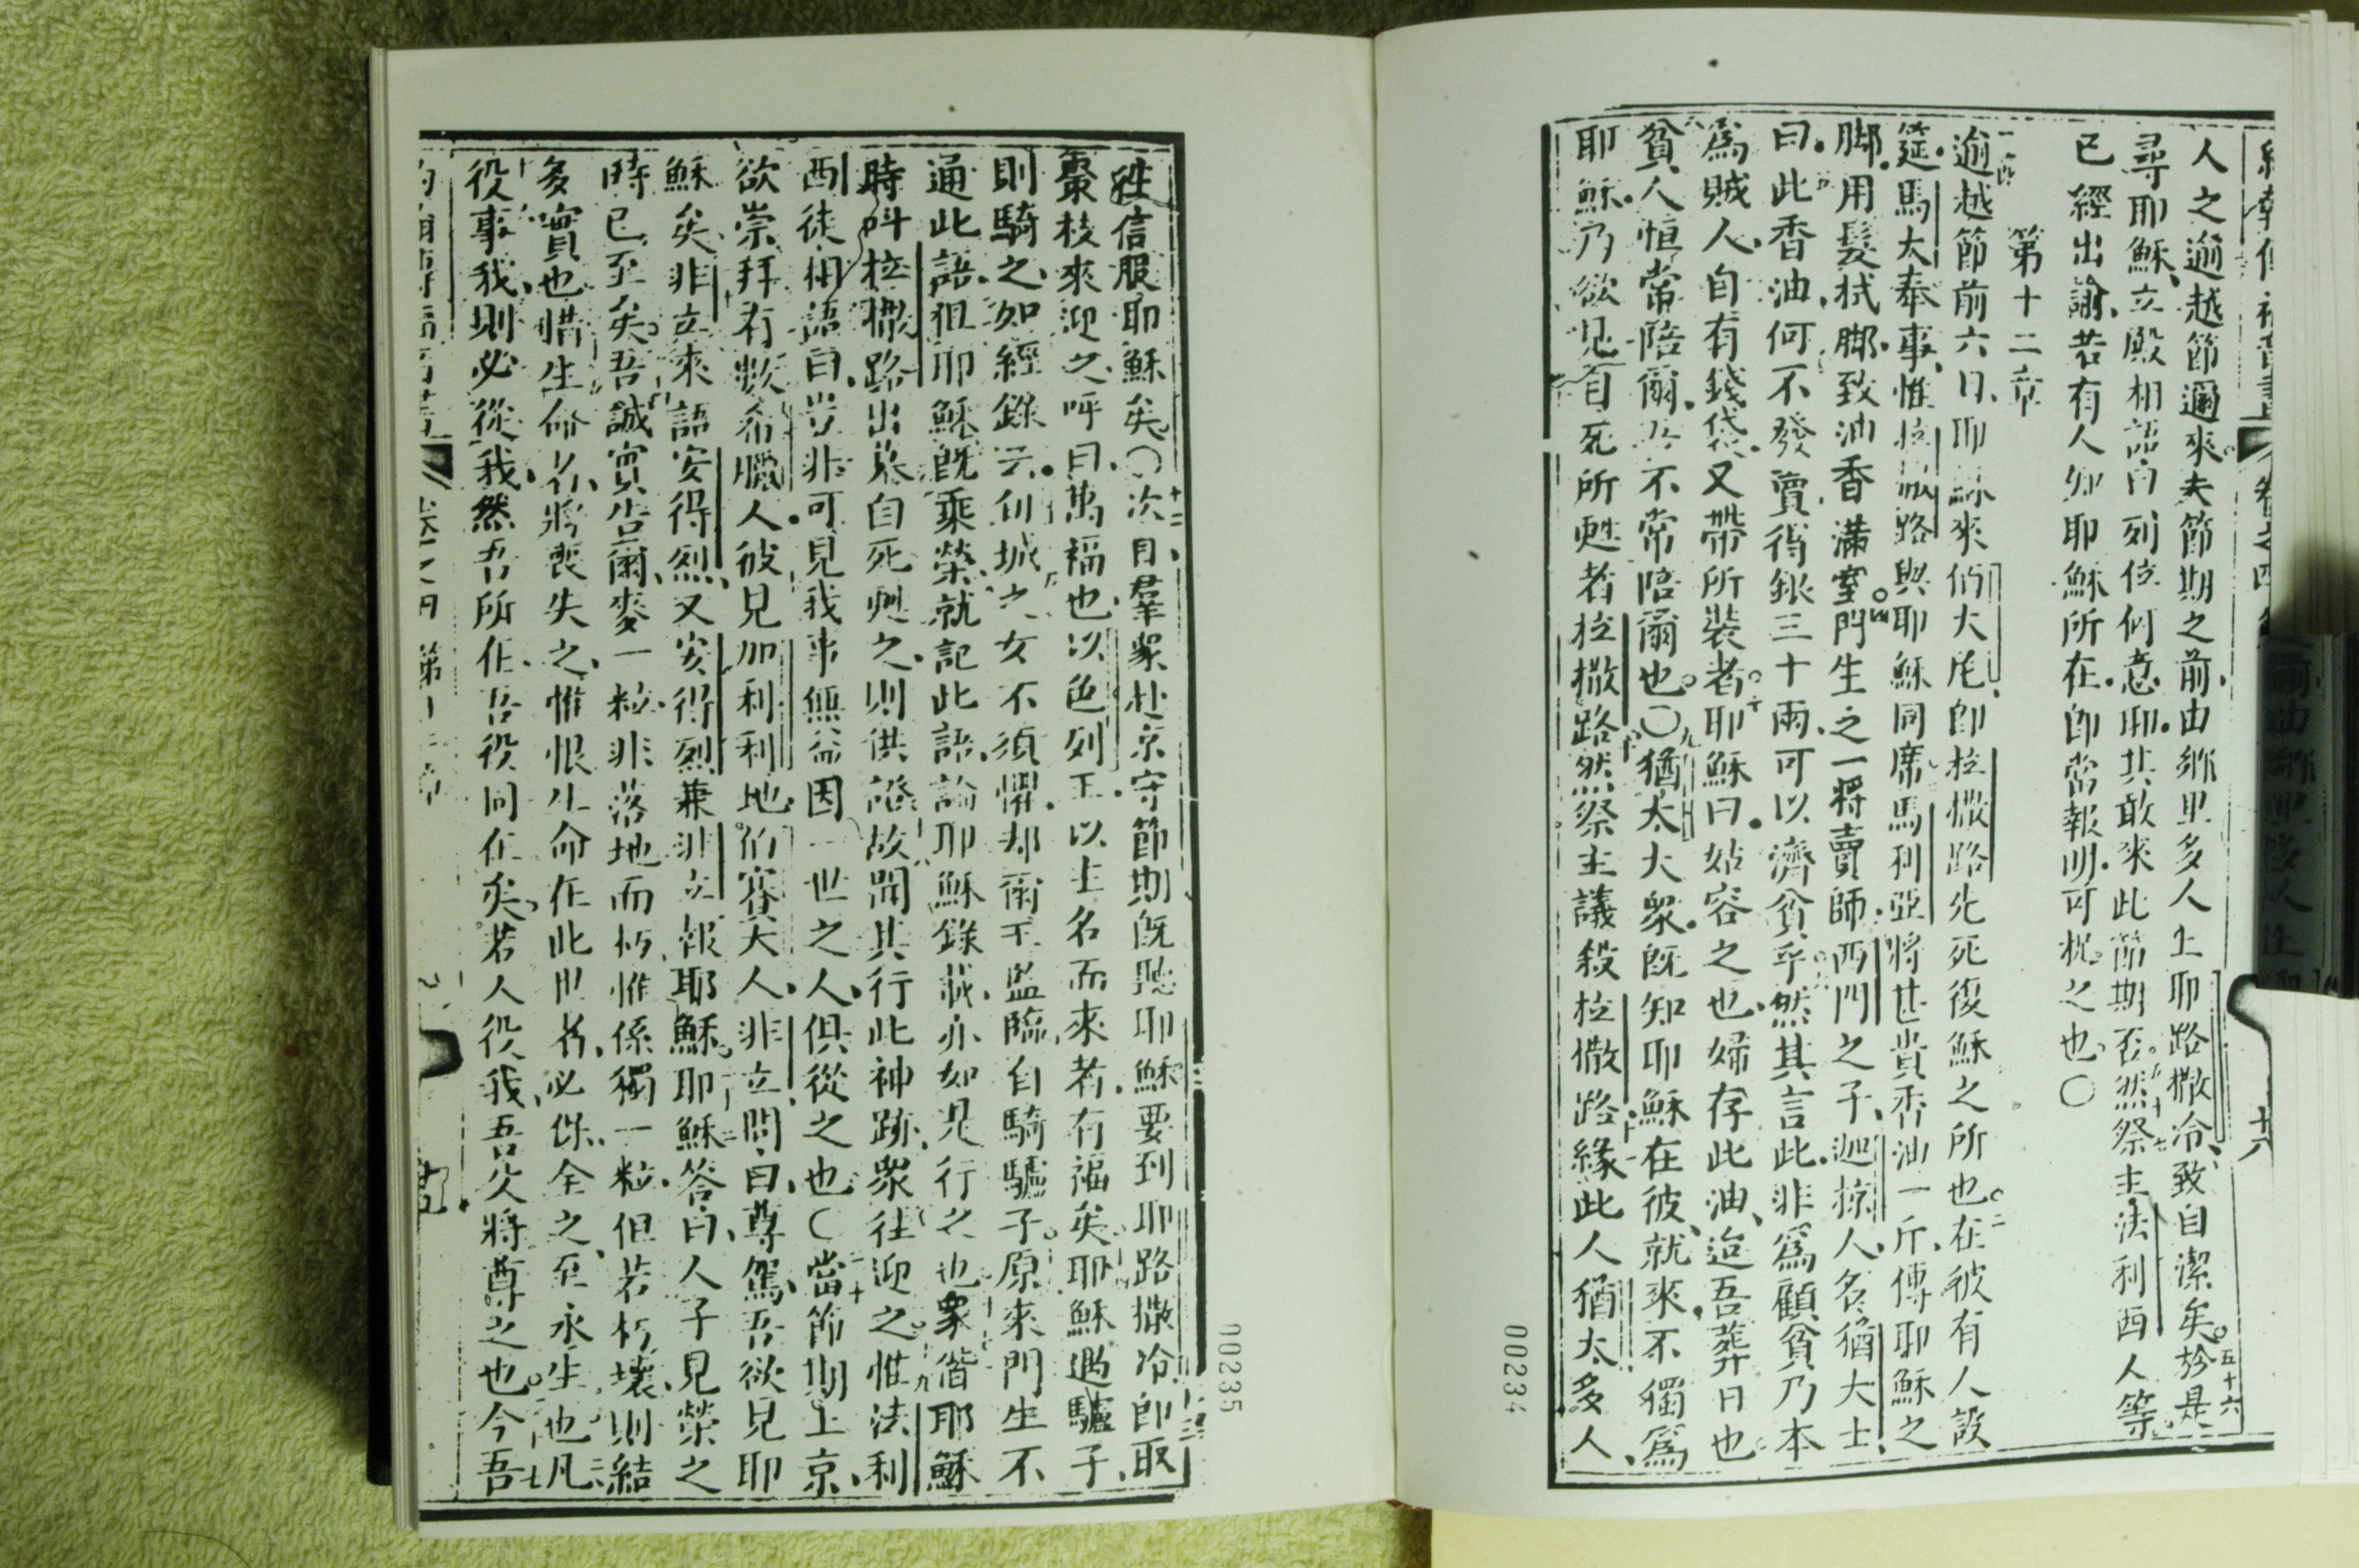 人之逾越節邇來夫節期之前由鄉里多人上耶路撒冷致自潔矣五十六於是
尋耶穌立殿相語曰列位何意耶其敢來此節期否然祭主法利西人等
已經出諭若有人知耶穌所在卽當報明可捉之也〇
第十二章
逾越節前六日耶穌來伯大尼卽拉撒路先死復穌之所也二在彼有人設
筵馬大奉事惟拉撒路與耶穌同席馬利亞將甚貴香油一斤傅耶穌之
脚用髮拭脚致油香滿室四門生之一將賣師西門之子迦掠人名猶大士
曰此香油何不發賣得銀三十兩可以濟貧乎然其言此非爲顧貧乃本
爲賊人自有錢袋又帶所裝者耶穌曰姑容之也婦存此油迨吾葬日也
貧人恒常陪爾吾不常陪爾也〇九猶太大衆旣知耶穌在彼就來不獨爲
耶穌乃欲見自死所甦者拉撒路然祭主議殺拉撒路緣此人猶太多人
往信服耶穌矣〇十二次日羣衆赴京守節期旣聽耶穌要到耶路撒冷卽取
棗枝來迎之呼曰萬福也以色列王以主名而來者有福矣耶穌遇驢子
則騎之如經錄云郇城之女不須懼却爾王監臨自騎驢子原來門生不
通此語狙耶穌旣乘榮就記此語論耶穌錄哉亦如是行之也衆偕耶穌
時呌拉撒路出墓自死甦之則供證故聞其行此神跡衆往迎之惟法利
西徒相語曰豈非可見我事無益因一世之人俱從之也〇二十當節期上京
欲崇拜有數希臘人彼見加利利地伯賽大人非立問曰尊駕吾欲見耶
穌矣非立來語安得烈又安得烈兼非立報耶穌耶穌答曰人子見榮之
時已至矣吾誠實告爾麥一粒非落地而朽惟係獨一粒但若朽壞則結
多實也惜生命者將喪失之惟恨生命在此世者必保全之至永生也凡
役事我則必從我然吾所在吾役同在矣若人役我吾父將尊之也今吾
00235
00234